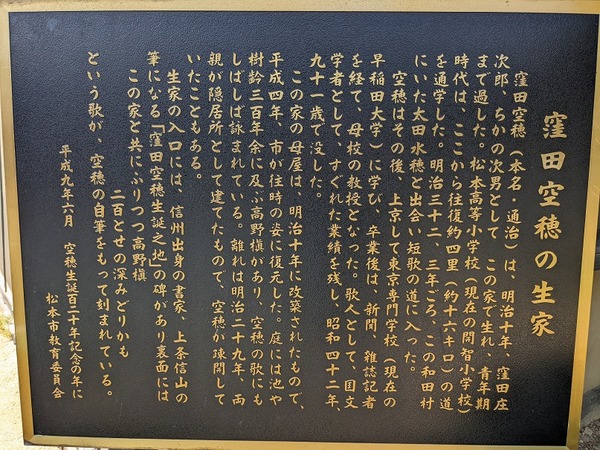 窪田空穂の生家
窪田空穂（本名・通治）は、明治十年、窪田庄
次郎、ちかの次男として　この家で生れ、青年期
まで過した。松本高等小学校（現在の開智小学校）
時代は、ここから往復約四里（約十六キロ）の道
を通学した。明治三十二、三年ごろ、この和田村
にいた太田水穂と出会い短歌の道に入った。
空穂はその後、上京して東京専門学校（現在の
早稲田大学）に学び、卒業後は、新聞、雑誌記者
を経て、母校の教授となった。歌人として、国文
学者として、すぐれた業績を残し、昭和四十二年、
九十一歳で没した。
この家の母屋は、明治十年に改築されたもので、
平成四年、市が往時の姿に復元した。庭には池や
樹齢三百年余に及ぶ高野槇があり、空穂の歌にも
しばしば詠まれている。離れは明治二十九年、両
親が隠居所として建てたもので、空穂が疎開して
いたこともある。
生家の入口には、信州出身の書家、上条信山の
筆になる「窪田空穂生誕之地」の碑があり裏面には
この家と共にふりつつ高野槇
二百とせの深みどりかも
という歌が、空穂の自筆をもって刻まれている。
平成九年六月　空穂生誕百二十年記念の年に
松本市教育委員会